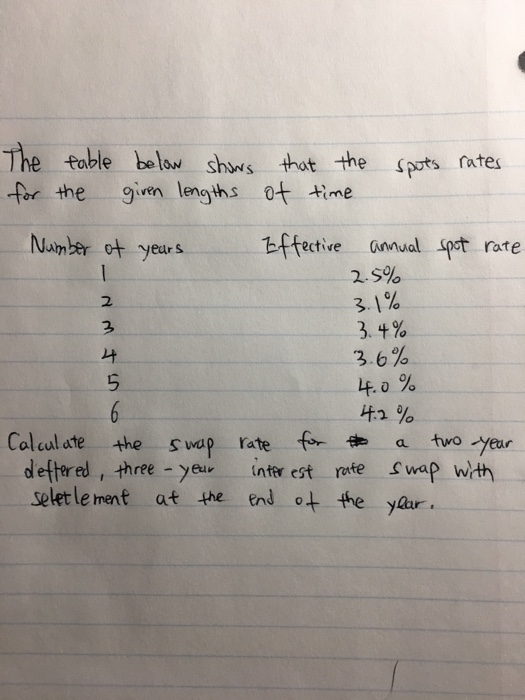 The table below shows that the spots rates
for the given lengths of time
Number of years Effective annual spot rate
1 2.5%
2 3.1%
3 3.4%
4 3.6%
5 4.0%
6 4.2%
Calculate the swap rate for a two-year
deffered, three-year interest rate swap with
seletlement at the end of the year.